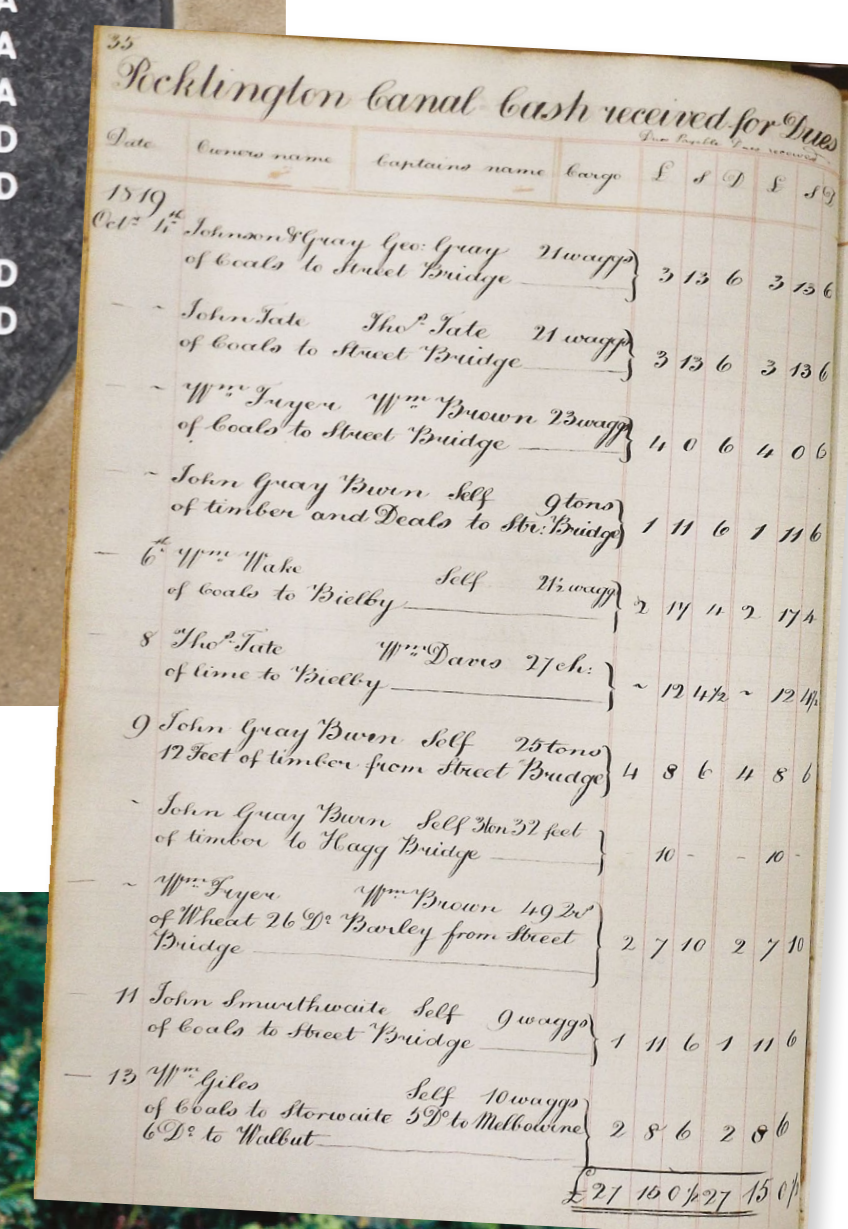 A
A
A
D
D
D
D
35
Pocklington Canal Cash received for Dues
Dues Payable Dues received
Date Owners name Captains name Cargo £ S D £ S D
1819
Octr 4th Johnson & Gray Geo: Gray 21 waggs
of Coals to Street Bridge 3 13 6 3 13 6
John Tate Thos Tate 21 waggs
of Coals to Street Bridge 3 13 6 3 13 6
Wm Fryer Wm Brown 23 waggs
of Coals to Street Bridge 4 0 6 4 0 6
John Gray Burn Self 9 tons
of timber and Deals to Str: Bridge 1 11 6 1 11 6
6th Wm Wake Self 21½ wagg
of Coals to Bielby 2 17 4 2 17 4
8 Thos Tate Wm Davis 27 ch:
of lime to Bielby ~ 12 4½ ~ 12 4½
9 John Gray Burn Self 25 tons
12 Feet of timber from Street Bridge 4 8 6 4 8 6
John Gray Burn Self 3 ton 32 feet
of timber to Hagg Bridge 10 - - 10 -
Wm Fryer Wm Brown 49 Qrs
of Wheat 26 Do Barley from Street
Bridge 2 7 10 2 7 10
11 John Smurthwaite Self 9 waggs
of Coals to Street Bridge 1 11 6 1 11 6
13 Wm Giles Self 10 waggs
of Coals to Storwaite 5 Do to Melbourne
6 Do to Walbut 2 8 6 2 8 6
£ 27 15 0½ 27 15 0½